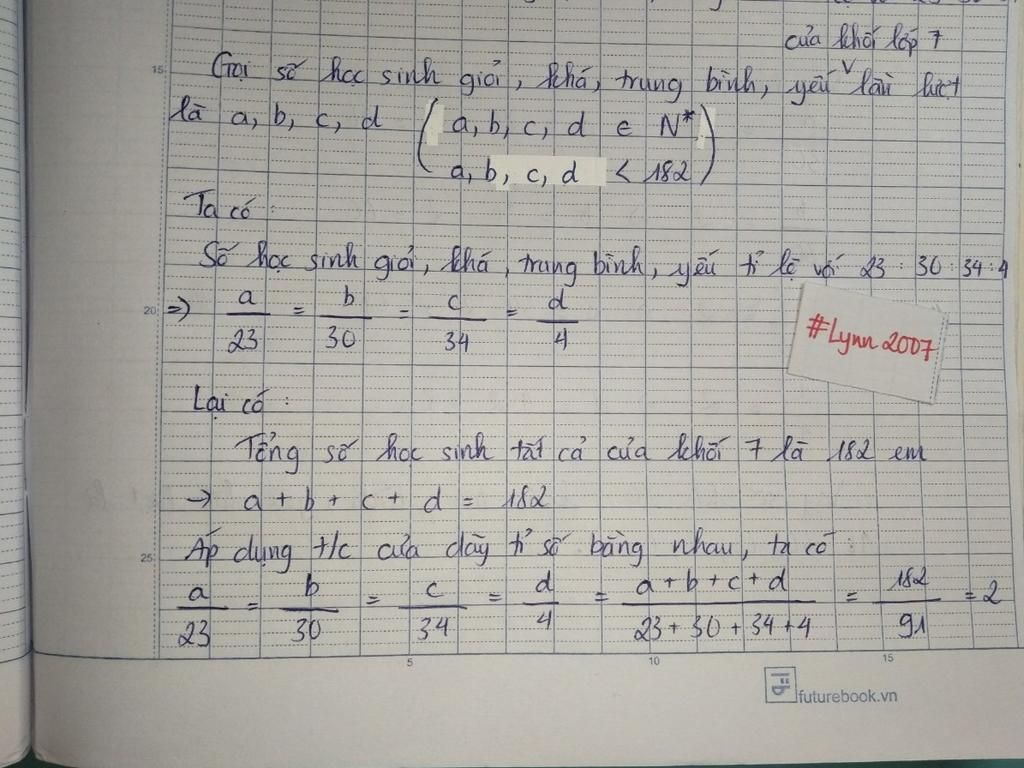 của khối lớp 7
15
Gọi số học sinh giỏi, khá, trung bình, yếu V lần lượt
là a, b, c, d ( a, b, c, d ∈ N*
a, b, c, d < 182 )
Ta có :
Số học sinh giỏi, khá, trung bình, yếu tỉ lệ với 23 : 30 : 34 : 4
20
=> a/23 = b/30 = c/34 = d/4
#Lynn2007
Lại có :
Tổng số học sinh tất cả của khối 7 là 182 em
-> a + b + c + d = 182
25
Áp dụng t/c của dãy tỉ số bằng nhau, ta có :
a/23 = b/30 = c/34 = d/4 = a + b + c + d/23 + 30 + 34 + 4 = 182/91 = 2
5 10 15
futurebook.vn